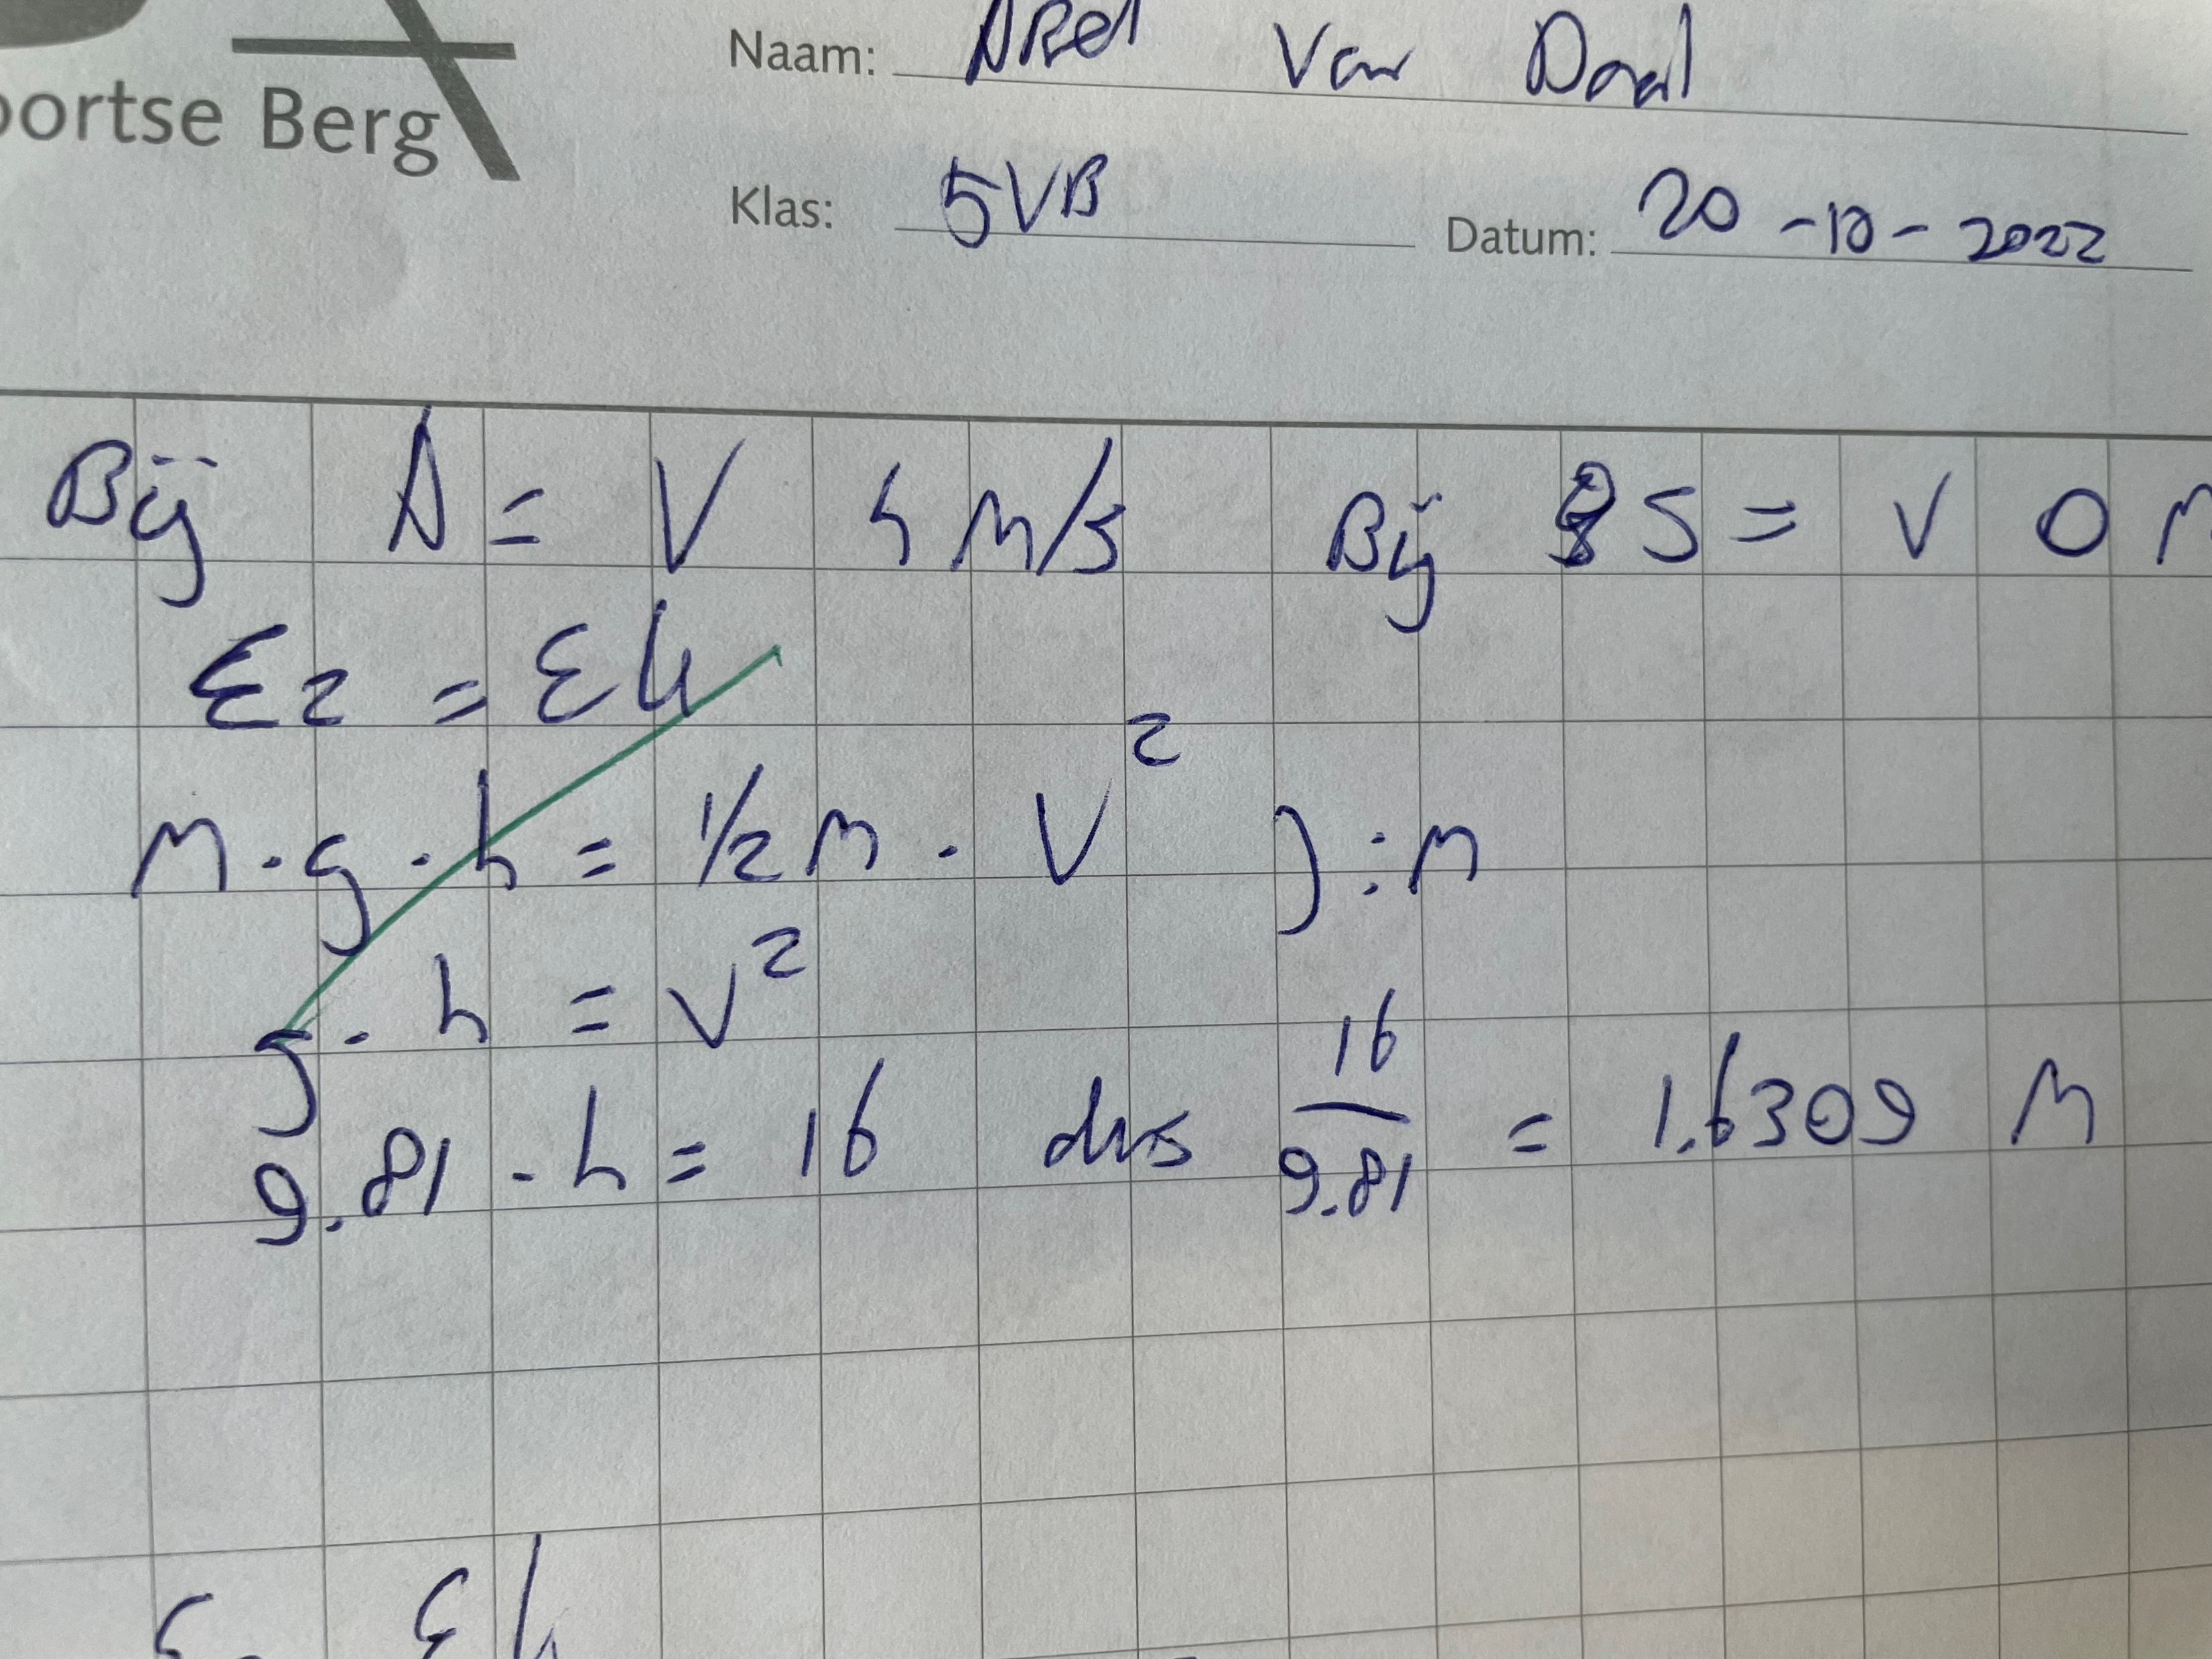 oortse Berg
Naam: Axel Van Daal
Klas: 5VB Datum: 20-10-2022
Bij A = V 4 m/s Bij S = V 0 m
Ez = Ek
m·g·h = 1/2 m · V² ) : m
g·h = V²
9.81 · h = 16 dus 16/9.81 = 1.6309 m
Ek